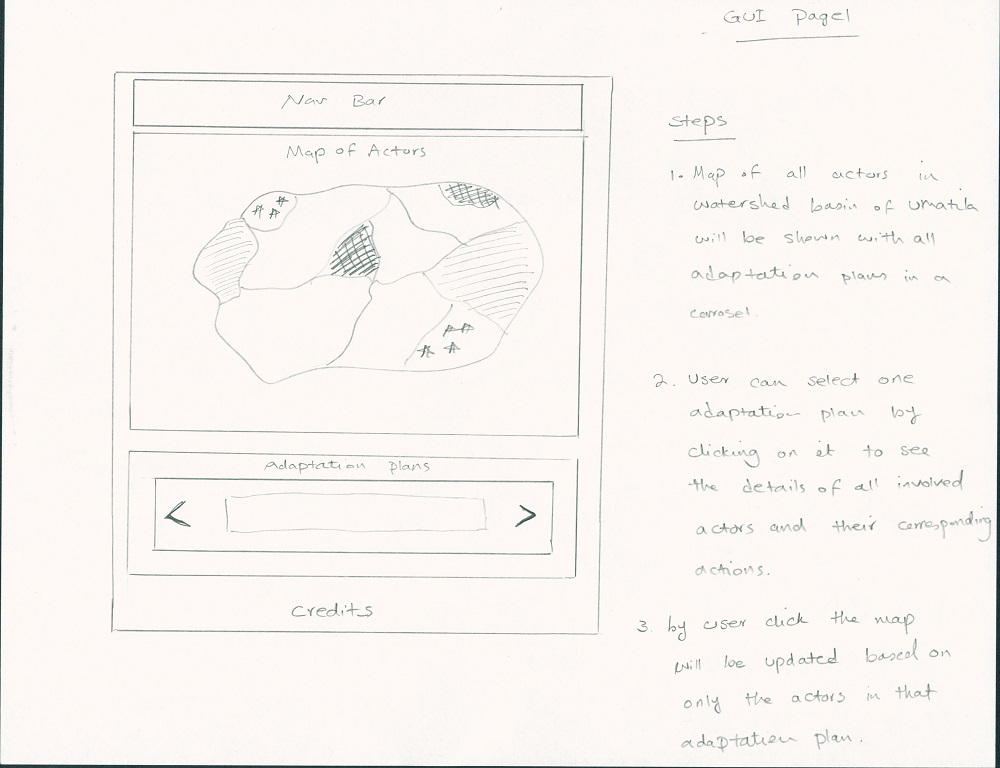 GUI Page1
Nav Bar
Map of Actors
Adaptation Plans
<
>
Credits
Steps
1. Map of all actors in
watershed basin of Umatila
will be shown with all
adaptation plans in a
carosel.
2. User can select one
adaptation plan by
clicking on it to see
the details of all involved
actors and their corresponding
actions.
3. by user click the map
will be updated based on
only the actors in that
adaptation plan.